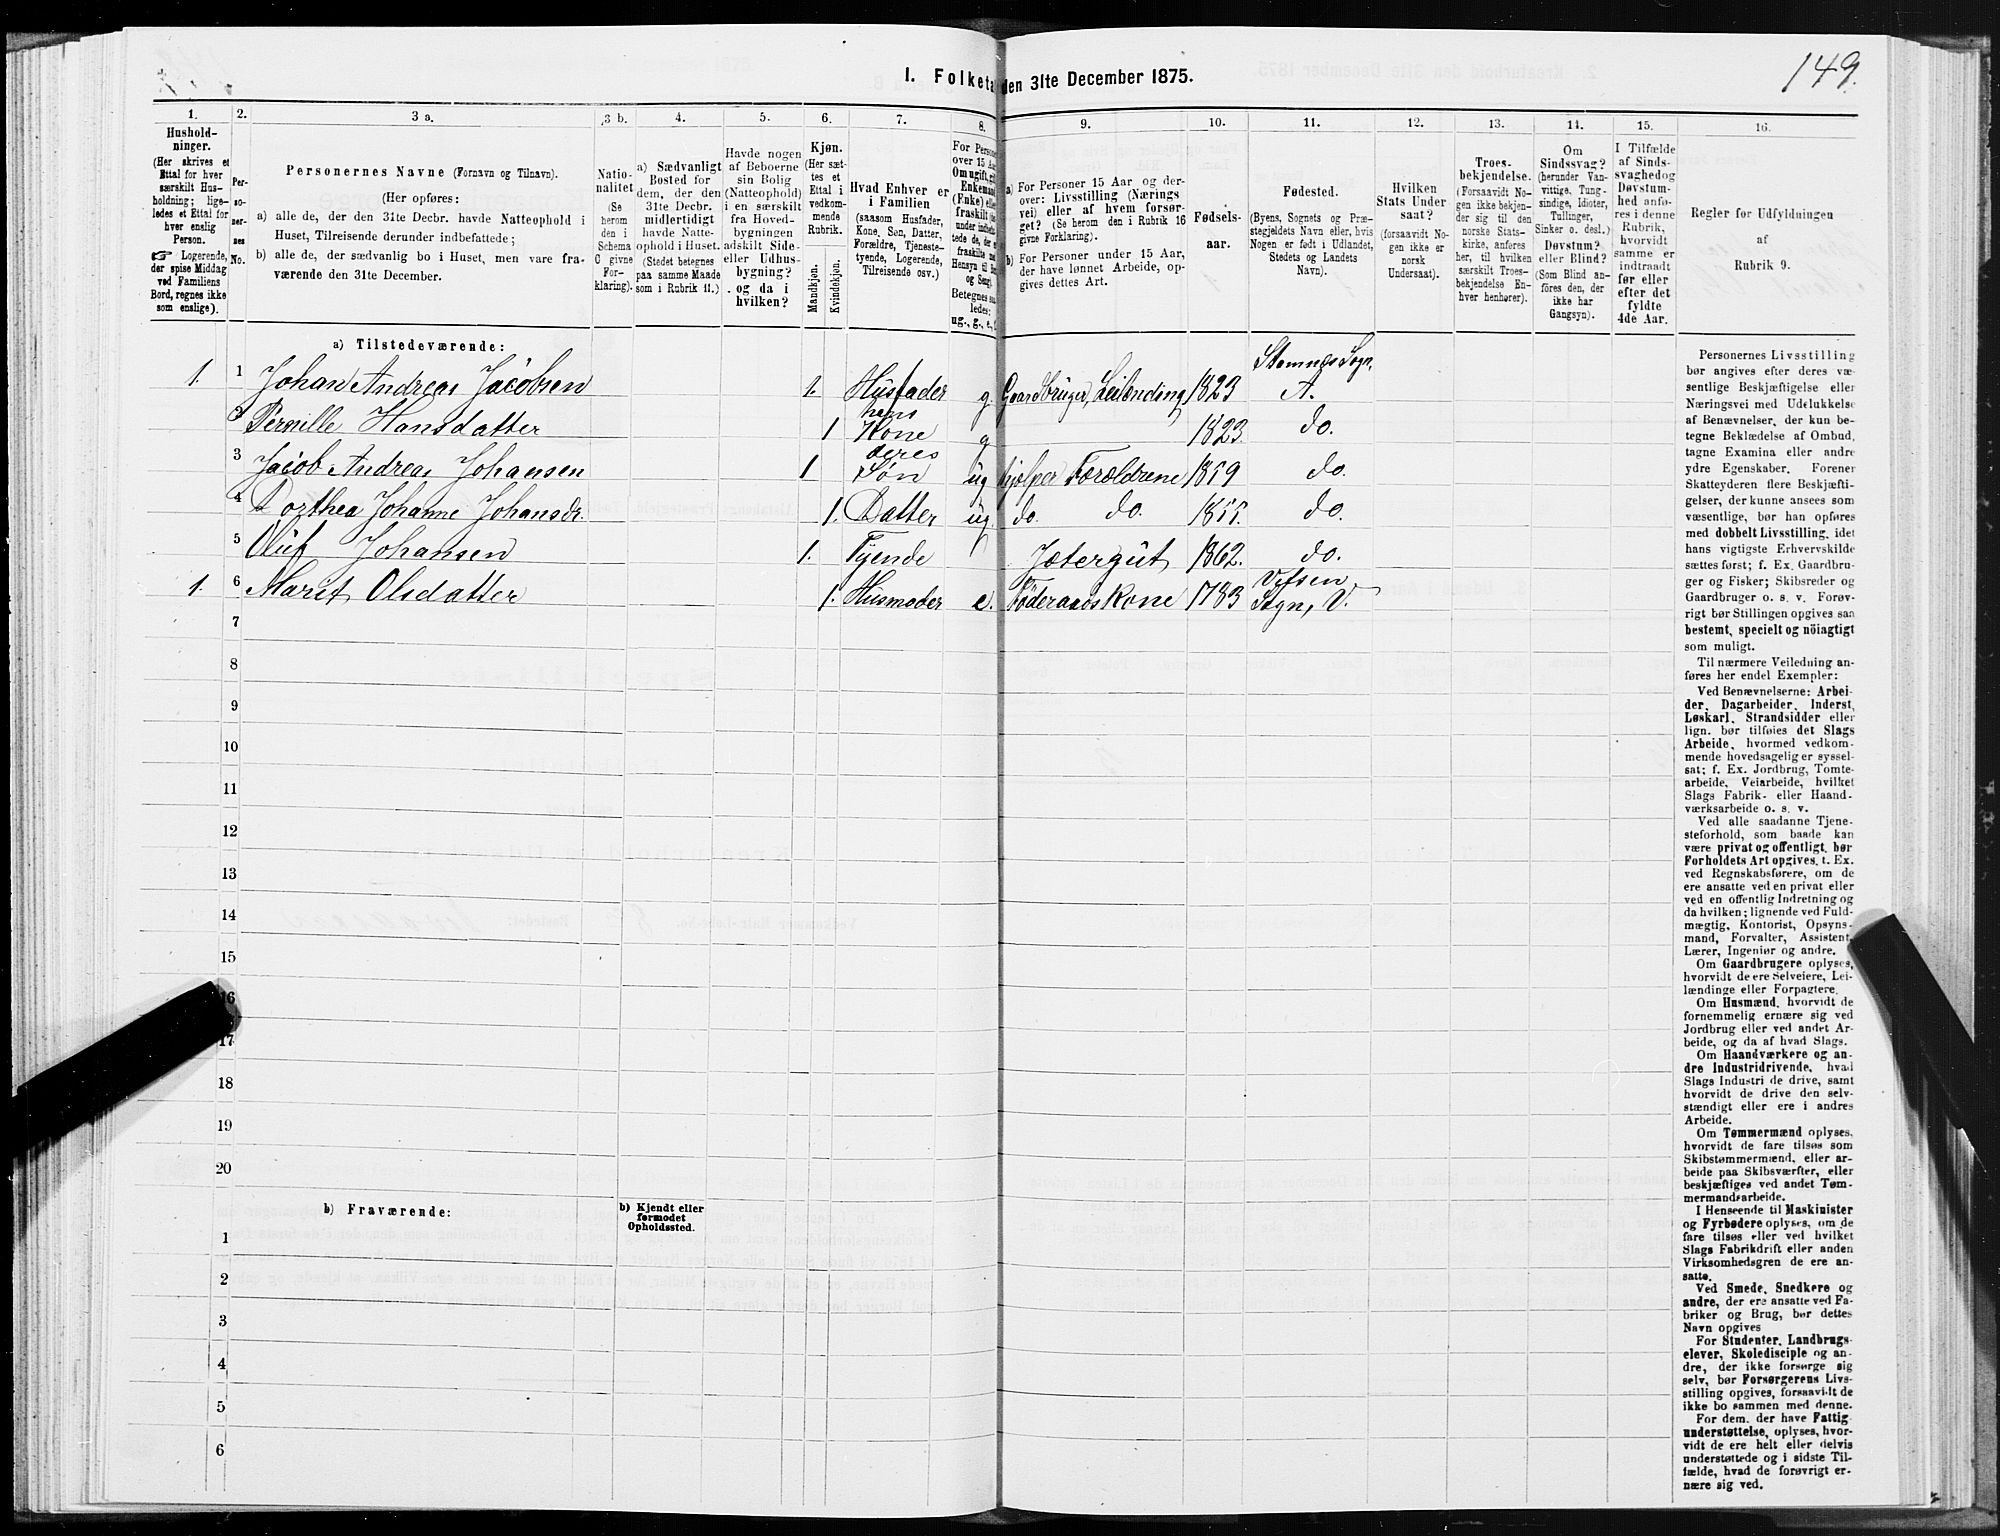 149.
I. Folketa
den 31te December 1875.
1.
2.
3 a.
3 b.
4.
5.
6.
7.
8.
9.
10.
11.
12.
13.
14.
15.
16.
Hushold-
ninger.
(Her skrives et
Ettal for hver
særskilt Hus-
holdning; lige-
ledes et Ettal for
hver enslig
Person.
☞ Logerende,
der spise Middag
ved Familiens
Bord, regnes ikke
som enslige).
Per-
so-
ner-
nes
No.
Personernes Navne (Fornavn og Tilnavn).
(Her opføres:
a) alle de, der den 31te Decbr. havde Natteophold i
Huset, Tilreisende derunder indbefattede;
b) alle de, der sædvanlig bo i Huset, men vare fra-
værende den 31te December.
Natio-
nalitet
(Se
herom
den i
Schema
C givne
For-
klaring).
a) Sædvanligt
Bosted for
dem, der den
31te Decbr.
midlertidigt
havde Natte-
ophold i Huset.
(Stedet betegnes
paa samme Maade
som i Rubrik 11.)
Havde nogen
af Beboerne
sin Bolig
(Natteophold)
i en særskilt
fra Hoved-
bygningen
adskilt Side-
eller Udhus-
bygning?
og da i
hvilken?
Kjøn.
(Her sæt-
tes et
Ettal i
vedkom-
mende
Rubrik.
Mandkjøn.
Kvindekjøn.
Hvad Enhver er
i Familien
(saasom Husfader,
Kone, Søn, Datter,
Forældre, Tjeneste-
tyende, Logerende,
Tilreisende osv.)
For Person
over 15 Aa
Om ugift, gi
Enkemand
(Enke) elle
fraskilt
Betegnes saa
ledes:
ug., g., e.,
a) For Personer 15 Aar og der-
over: Livsstilling (Nærings
vei) eller af hvem forsør-
get? (Se herom den i Rubrik 16
givne Forklaring).
b) For Personer under 15 Aar,
der have lønnet Arbeide, op-
gives dettes Art.
Fødsels-
aar.
Fødested.
(Byens, Sognets og Præ-
stegjeldets Navn eller, hvis
Nogen er født i Udlandet,
Stedets og Landets
Navn).
Hvilken
Stats Under
saat?
(forsaavidt No-
gen ikke er
norsk
Undersaat).
Troes-
bekjendelse.
(Forsaavidt No-
gen ikke bekjen-
der sig til den
norske Stats-
kirke, anføres
her, til hvilken
særskilt Troes-
bekjendelse En-
hver henhører).
Om
Sindssvag?
(herunder Van-
vittige, Tung-
sindige, Idioter,
Tullinger,
Sinker o. desl.)
Døvstum?
eller Blind?
(Som Blind an-
føres den, der
ikke har
Gangsyn).
I Tilfælde
af Sinds-
svaghedog
Døvstum-
hed anfø-
res i denne
Rubrik,
hvorvidt
samme er
indtraadt
før eller
efter det
fyldte
4de Aar.
Regler for Udfyldningen
af
Rubrik 9.
a) Tilstedeværende:
Stamnes Sogn,
1. 1 Johan Andreas Jacobsen 1. Husfader g. Gaardbruger, Leilænding 1823 A.
hans
2 Pernille Hansdatter 1 Kone g 1823. do.
deres
3 Jacob Andreas Johansen 1 Søn ug hjelper Forældrene 1859 do.
4 Dorthea Johanne Johansdr. 1. Datter ug. do. do. 1855. do.
5 Oluf Johansen 1. Tyende Jætergut 1862. do.
Vefsen
1. 6 Marit Olsdatter 1. Husmoder e. Føderaadskone 1783 Sogn, V.
7
8
9
10
11
12
13
14
15
16
17
18
19
20
b) Fraværende:
b) Kjendt eller
formodet
Opholdssted.
1
2
3
4
5
6
Personernes Livsstilling
bør angives efter deres væ-
sentlige Beskjæftigelse eller
Næringsvei med Udelukkelse
af Benævnelser, der kun be-
tegne Beklædelse af Ombud,
tagne Examina eller andre
ydre Egenskaber. Forener
Skatteyderen flere Beskjæfti-
gelser, der kunne ansees som
væsentlige, bør han opføres
med dobbelt Livsstilling, idet
hans vigtigste Erhvervskilde
sættes først; f. Ex. Gaardbru-
ger og Fisker; Skibsreder og
Gaardbruger o. s. v. Forøv-
rigt bør Stillingen opgives saa
bestemt, specielt og nöiagtigt
som muligt.
Til nærmere Veiledning an-
føres her endel Exempler:
Ved Benævnelserne: Arbei-
der, Dagarbeider, Inderst,
Løskarl, Strandsidder eller
lign. bør tilføies det Slags
Arbeide, hvormed vedkom-
mende hovedsagelig er syssel-
sat; f. Ex. Jordbrug, Tomte-
arbeide, Veiarbeide, hvilket
Slags Fabrik- eller Haand-
værksarbeide o. s. v.
Ved alle saadanne Tjene-
steforhold, som baade kan
være privat og offentligt, bør
Forholdets Art opgives, t. Ex.
ved Regnskabsførere, om de
ere ansatte ved en privat eller
ved en offentlig Indretning og
da hvilken; lignende ved Fuld-
mægtig, Kontorist, Opsyns-
mand, Forvalter, Assistent,
Lærer, Ingeniør og andre.
Om Gaardbrugere oplyses,
hvorvidt de ere Selveiere, Lei-
lændinge eller Forpagtere.
Om Husmænd, hvorvidt de
fornemmelig ernære sig ved
Jordbrug eller ved andet Ar-
beide, og da af hvad Slags.
Om Haandværkere og an-
dre Industridrivende, hvad
Slags Industri de drive, samt
hvorvidt de drive den selv-
stændigt eller ere i andres
Arbeide.
Om Tømmermænd oplyses,
hvorvidt de fare tilsøs som
Skibstømmermænd, eller ar-
beide paa Skibsværfter, eller
beskjæftiges ved andet Tøm-
mermandsarbeide.
I Henseende til Maskinister
og Fyrbødere oplyses, om de
fare tilsøs eller ved hvilket
Slags Fabrikdrift eller anden
Virksomhedsgren de ere an-
satte.
Ved Smede, Snedkere og
andre, der ere ansatte ved Fa-
briker og Brug, bør dettes
Navn opgives
For Studenter, Landbrugs-
elever, Skoledisciple og an-
dre, der ikke forsørge sig
selv, bør Forsørgerens Livs-
stilling opgives, forsaavidt de
ikke bo sammen med denne.
For dem, der have Fattig
understøttelse, oplyses, hvor-
vidt de ere helt eller delvis
understøttede og i sidste Til-
fælde, hvad de forøvrigt er-
nære sig ved.